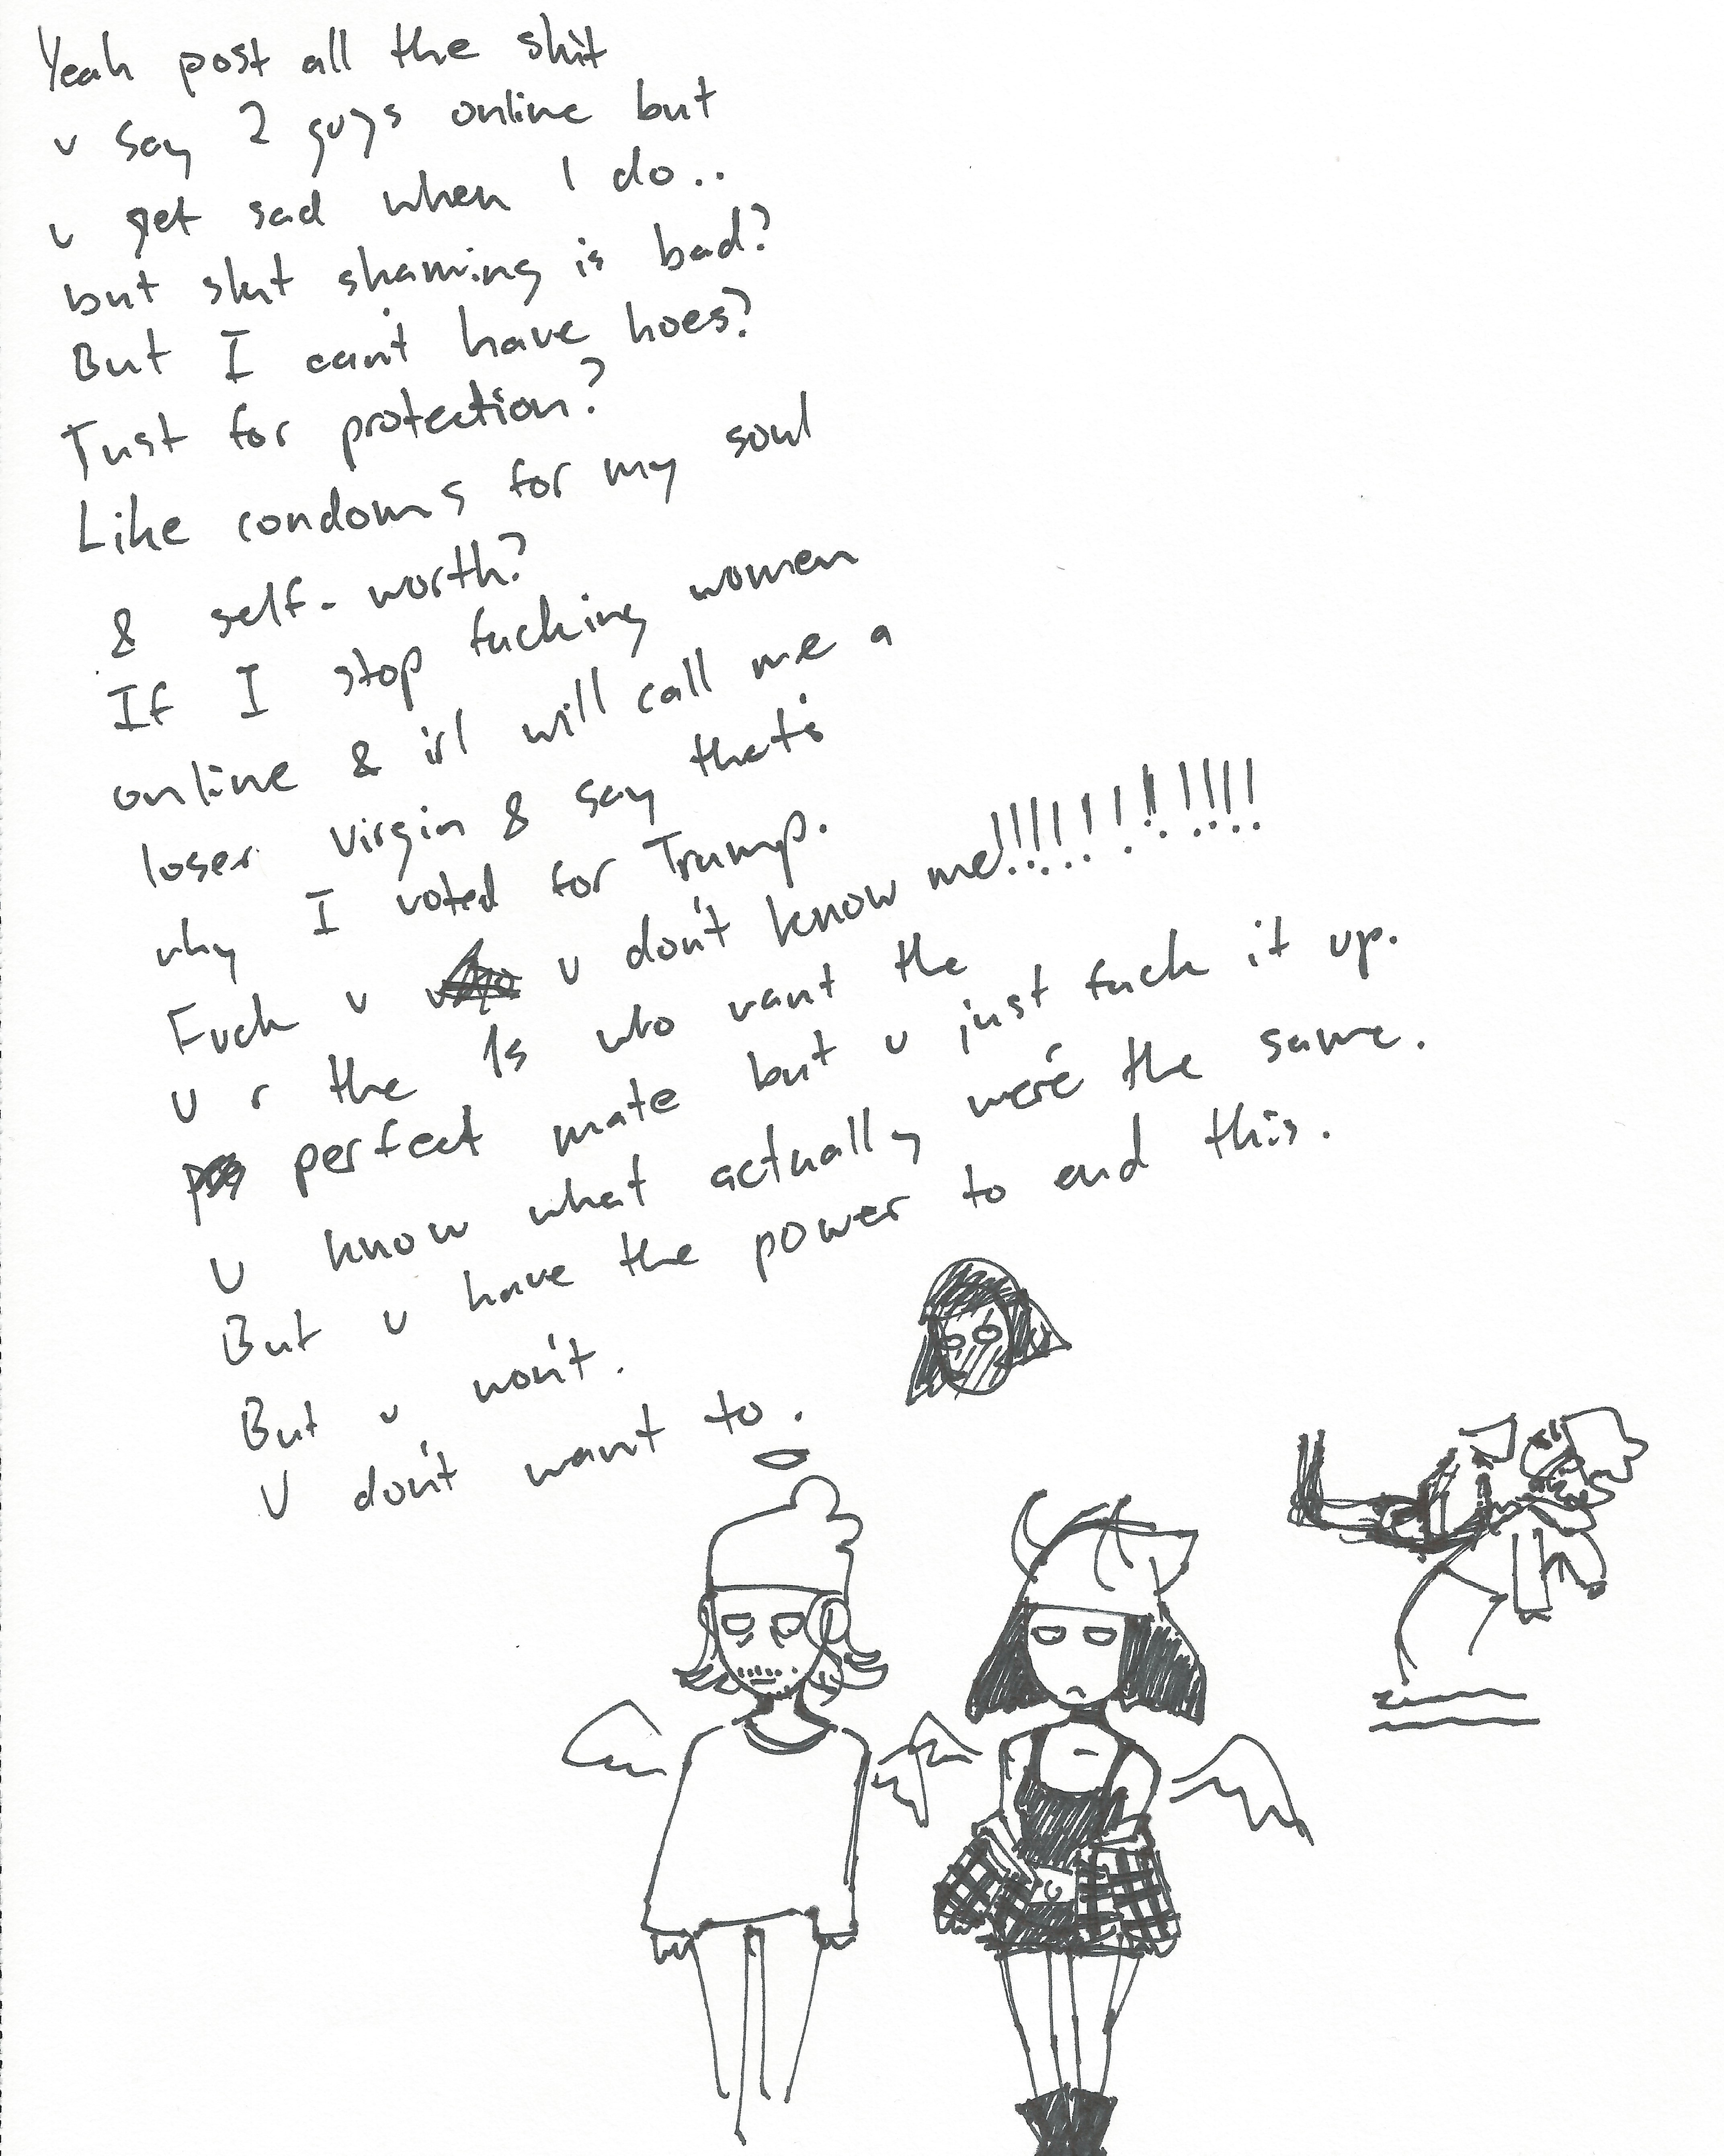 Yeah post all the shit
u say 2 guys online but
u get sad when I do..
but slut shaming is bad?
But I can't have hoes?
Just for protection?
Like condoms for my soul
& self-worth?
If I stop fucking women
online & irl will call me a
loser virgin & say that's
why I voted for Trump.
Fuck u u don't know me!!!!!!!!!!!!!
U r the 1s who want the
perfect mate but u just fuck it up.
U know what actually we're the same.
But u have the power to end this.
But u won't.
U don't want to.